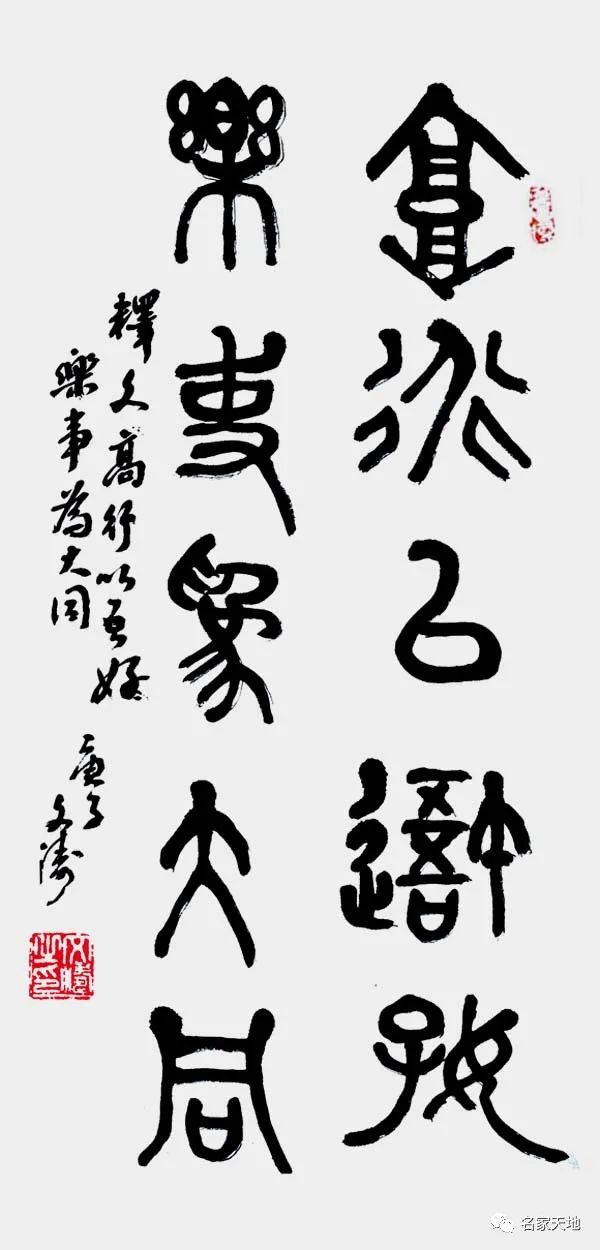 高行以吾好
樂事為大同
釋文高行以吾好
樂事為大同
庚子文濤
文濤之印
名家天地